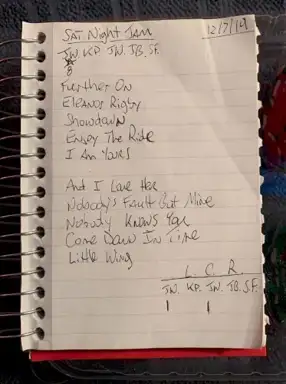 SAT Night JAM 12/7/19
JW. KP. JW. JB. SF.
8
Further On
Eleanor Rigby
Showdown
Enjoy The Ride
I Am Yours
And I Love Her
Nobody's Fault But Mine
Nobody Knows You
Come Down In Time
Little Wing
L. C. R.
JW. KP. JW. JB. S.F.
1 1